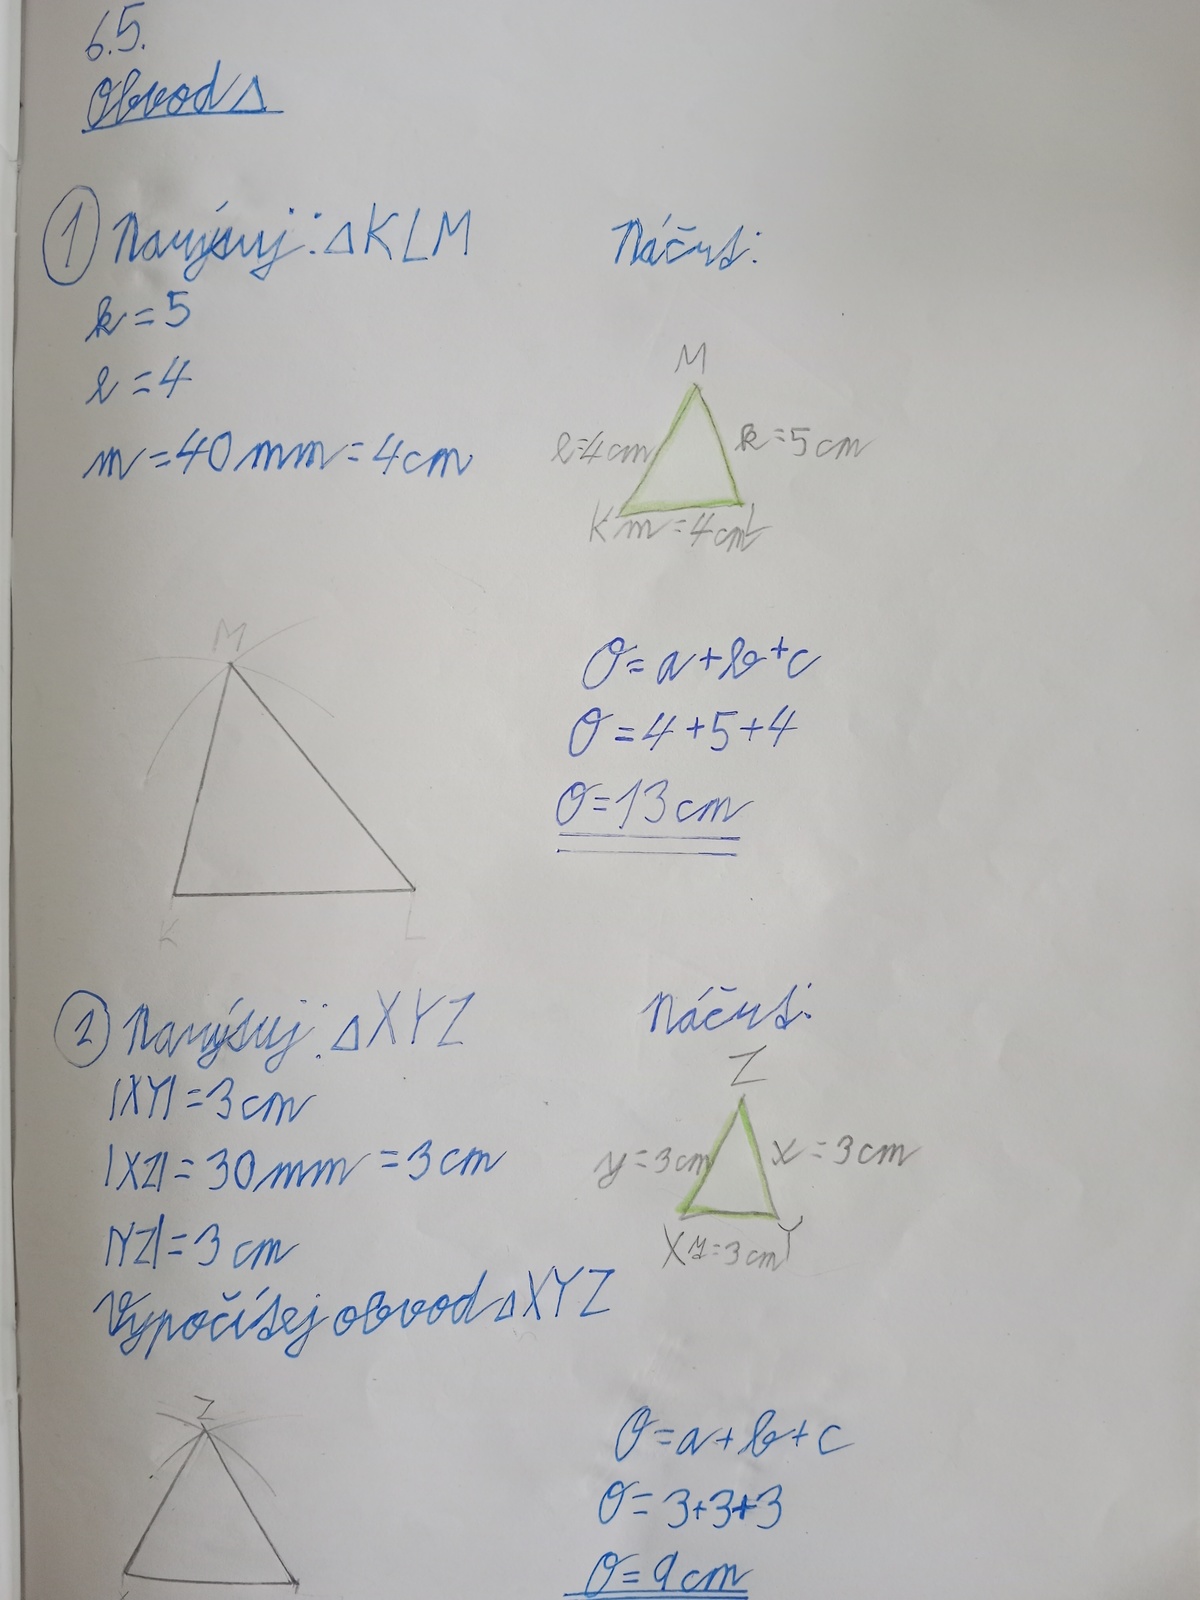 6.5.
Obvod △
1 Narýsuj: △KLM
k = 5
l = 4
m = 40 mm = 4 cm
Náčrt:
M
l=4cm
k = 5 cm
K m = 4 cm L
M
K L
O = a + b + c
O = 4 + 5 + 4
O = 13 cm
2 Narýsuj: △XYZ
|XY| = 3 cm
|XZ| = 30 mm = 3 cm
|YZ| = 3 cm
Vypočítej obvod △XYZ
Náčrt:
Z
y = 3 cm
x = 3 cm
X z = 3 cm Y
Z
O = a + b + c
O = 3 + 3 + 3
O = 9 cm